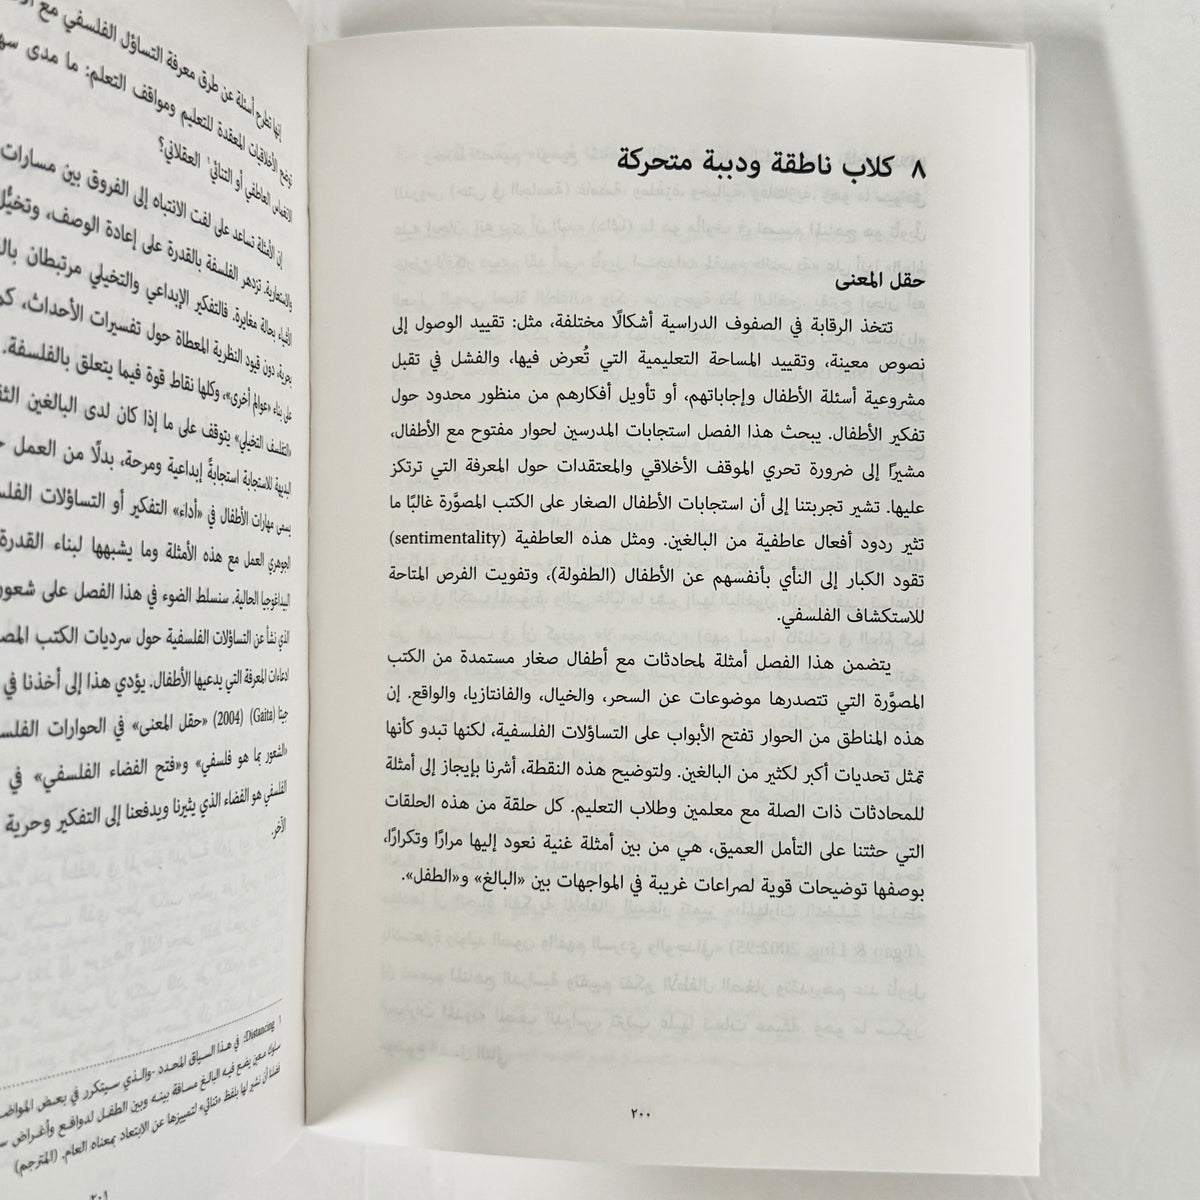 ٨ كلاب ناطقة ودببة متحركة
حقل المعنى
تتخذ الرقابة في الصفوف الدراسية أشكالًا مختلفة، مثل: تقييد الوصول إلى
نصوص معينة، وتقييد المساحة التعليمية التي تُعرض فيها، والفشل في تقبل
مشروعية أسئلة الأطفال وإجاباتهم، أو تأويل أفكارهم من منظور محدود حول
تفكير الأطفال. يبحث هذا الفصل استجابات المدرسين لحوار مفتوح مع الأطفال،
مشيرًا إلى ضرورة تحري الموقف الأخلاقي والمعتقدات حول المعرفة التي ترتكز
عليها. تشير تجربتنا إلى أن استجابات الأطفال الصغار على الكتب المصوَّرة غالبًا ما
تثير ردود أفعال عاطفية من البالغين. ومثل هذه العاطفية (sentimentality)
تقود الكبار إلى النأي بأنفسهم عن الأطفال (الطفولة)، وتفويت الفرص المتاحة
للاستكشاف الفلسفي.
يتضمن هذا الفصل أمثلة لمحادثات مع أطفال صغار مستمدة من الكتب
المصوَّرة التي تتصدرها موضوعات عن السحر، والخيال، والفانتازيا، والواقع. إن
هذه المناطق من الحوار تفتح الأبواب على التساؤلات الفلسفية، لكنها تبدو كأنها
تمثل تحديات أكبر لكثير من البالغين. ولتوضيح هذه النقطة، أشرنا بإيجاز إلى أمثلة
للمحادثات ذات الصلة مع معلمين وطلاب التعليم. كل حلقة من هذه الحلقات
التي حثتنا على التأمل العميق، هي من بين أمثلة غنية نعود إليها مرارًا وتكرارًا،
بوصفها توضيحات قوية لصراعات غريبة في المواجهات بين «البالغ» و«الطفل».
٢٠٠
إنها تطرح أسئلة عن طرق معرفة التساؤل الفلسفي مع
الأخلاقيات المعقدة للتعليم ومواقف التعلم: ما مدى
الانغماس العاطفي أو التنائي١ العقلاني؟
إن الأمثلة تساعد على لفت الانتباه إلى الفروق بين مسارات
والاستعارية. تزدهر الفلسفة بالقدرة على إعادة الوصف، وتخيُّل
الأشياء بحالة مغايرة. فالتفكير الإبداعي والتخيلي مرتبطان
بحرية، دون قيود النظرية المعطاة حول تفسيرات الأحداث،
على بناء «عوالم أخرى»، وكلها نقاط قوة فيما يتعلق بالفلسفة.
«التفلسف التخيلي» يتوقف على ما إذا كان لدى البالغين
البديهة للاستجابة استجابةً إبداعية ومرحة، بدلًا من العمل
يسمى مهارات الأطفال في «أداء» التفكير أو التساؤلات
الجوهري العمل مع هذه الأمثلة وما يشبهها لبناء القدرة
البيداغوجيا الحالية. سنسلط الضوء في هذا الفصل على
الذي نشأ عن التساؤلات الفلسفية حول سرديات الكتب
ادعاءات المعرفة التي يدعيها الأطفال. يؤدي هذا إلى أخذنا في
جيتا (Gaita) (2004) «حقل المعنى» في الحوارات
«الشعور بما هو فلسفي» و«فتح الفضاء الفلسفي» في
الفلسفي هو الفضاء الذي يثيرنا ويدفعنا إلى التفكير وحرية
الآخر.
١ Distancing: في هذا السياق المحدد -والذي سيتكرر في بعض
سلوك معين يضع فيه البالغ مسافة بينه وبين الطفل لدوافع وأغراض
أن نشير لها بلفظ «تنائي» لتمييزها عن الابتعاد بمعناه العام. (المترجم)
٢٠١